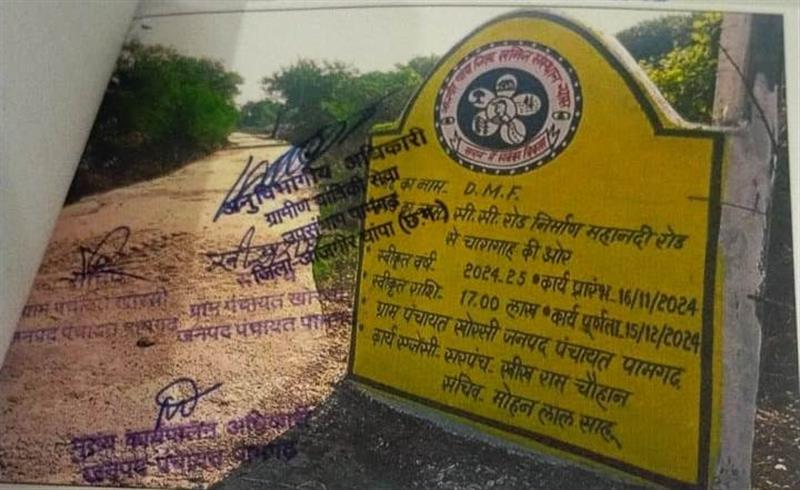 जांजगीर चांपा जिला खनिज संस्थान न्यास
का नाम- D.M.F.
सी.सी. रोड निर्माण महानदी रोड
से चारागाह की ओर
* स्वीकृत वर्ष- 2024-25 * कार्य प्रारंभ- 16/11/2024
* स्वीकृत राशि- 17.00 लाख * कार्य पूर्णता- 15/12/2024
* ग्राम पंचायत खोरसी जनपद पंचायत पामगढ़
* कार्य एजेंसी- सरपंच- राम चौहान
सचिव- मोहन लाल साहू
अनुविभागीय अधिकारी
ग्रामीण यांत्रिकी सेवा
उपसंभाग पामगढ़
जिला-जांजगीर चांपा (छ.ग.)
ग्राम पंचायत खोरसी
जनपद पंचायत पामगढ़
ग्राम पंचायत
जनपद पंचायत
मुख्य कार्यपालन अधिकारी
जनपद पंचायत पामगढ़